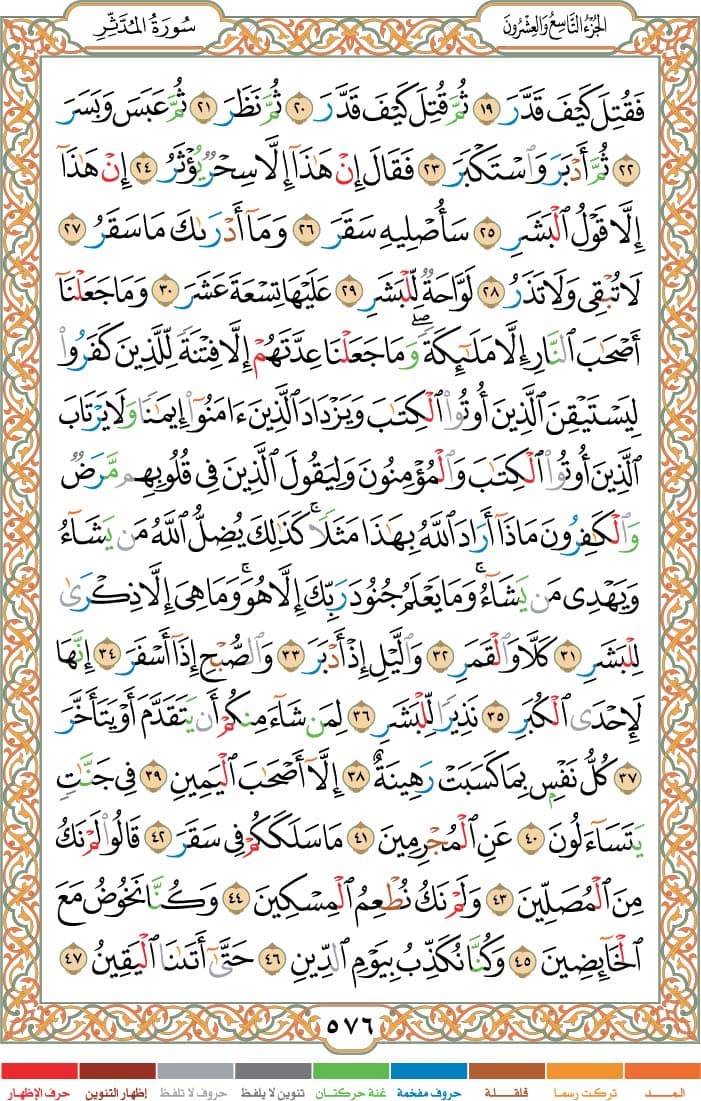 سُورَةُ المُدَّثِّرِ
الجُزْءُ التَّاسِعُ وَالعِشْرُونَ
فَقُتِلَ كَيْفَ قَدَّرَ ١٩ ثُمَّ قُتِلَ كَيْفَ قَدَّرَ ٢٠ ثُمَّ نَظَرَ ٢١ ثُمَّ عَبَسَ وَبَسَرَ
٢٢ ثُمَّ أَدْبَرَ وَٱسْتَكْبَرَ ٢٣ فَقَالَ إِنْ هَٰذَآ إِلَّا سِحْرٌ يُؤْثَرُ ٢٤ إِنْ هَٰذَآ
إِلَّا قَوْلُ ٱلْبَشَرِ ٢٥ سَأُصْلِيهِ سَقَرَ ٢٦ وَمَآ أَدْرَىٰكَ مَا سَقَرُ ٢٧
لَا تُبْقِى وَلَا تَذَرُ ٢٨ لَوَّاحَةٌ لِّلْبَشَرِ ٢٩ عَلَيْهَا تِسْعَةَ عَشَرَ ٣٠ وَمَا جَعَلْنَآ
أَصْحَٰبَ ٱلنَّارِ إِلَّا مَلَٰٓئِكَةً ۙ وَمَا جَعَلْنَا عِدَّتَهُمْ إِلَّا فِتْنَةً لِّلَّذِينَ كَفَرُوا۟
لِيَسْتَيْقِنَ ٱلَّذِينَ أُوتُوا۟ ٱلْكِتَٰبَ وَيَزْدَادَ ٱلَّذِينَ ءَامَنُوٓا۟ إِيمَٰنًا وَلَا يَرْتَابَ
ٱلَّذِينَ أُوتُوا۟ ٱلْكِتَٰبَ وَٱلْمُؤْمِنُونَ وَلِيَقُولَ ٱلَّذِينَ فِى قُلُوبِهِم مَّرَضٌ
وَٱلْكَٰفِرُونَ مَاذَآ أَرَادَ ٱللَّهُ بِهَٰذَا مَثَلًا ۚ كَذَٰلِكَ يُضِلُّ ٱللَّهُ مَن يَشَآءُ
وَيَهْدِى مَن يَشَآءُ ۚ وَمَا يَعْلَمُ جُنُودَ رَبِّكَ إِلَّا هُوَ ۚ وَمَا هِىَ إِلَّا ذِكْرَىٰ
لِلْبَشَرِ ٣١ كَلَّا وَٱلْقَمَرِ ٣٢ وَٱلَّيْلِ إِذْ أَدْبَرَ ٣٣ وَٱلصُّبْحِ إِذَآ أَسْفَرَ ٣٤ إِنَّهَا
لَإِحْدَى ٱلْكُبَرِ ٣٥ نَذِيرًا لِّلْبَشَرِ ٣٦ لِمَن شَآءَ مِنكُمْ أَن يَتَقَدَّمَ أَوْ يَتَأَخَّرَ
٣٧ كُلُّ نَفْسٍۭ بِمَا كَسَبَتْ رَهِينَةٌ ٣٨ إِلَّآ أَصْحَٰبَ ٱلْيَمِينِ ٣٩ فِى جَنَّٰتٍ
يَتَسَآءَلُونَ ٤٠ عَنِ ٱلْمُجْرِمِينَ ٤١ مَا سَلَكَكُمْ فِى سَقَرَ ٤٢ قَالُوا۟ لَمْ نَكُ
مِنَ ٱلْمُصَلِّينَ ٤٣ وَلَمْ نَكُ نُطْعِمُ ٱلْمِسْكِينَ ٤٤ وَكُنَّا نَخُوضُ مَعَ
ٱلْخَآئِضِينَ ٤٥ وَكُنَّا نُكَذِّبُ بِيَوْمِ ٱلدِّينِ ٤٦ حَتَّىٰٓ أَتَىٰنَا ٱلْيَقِينُ ٤٧
٥٧٦
المـــد تركت رسما قلقـلة حروف مفخمة غنة حركتان تنوين لا يلفظ حروف لا تلفظ إظهار التنوين حرف الإظهار